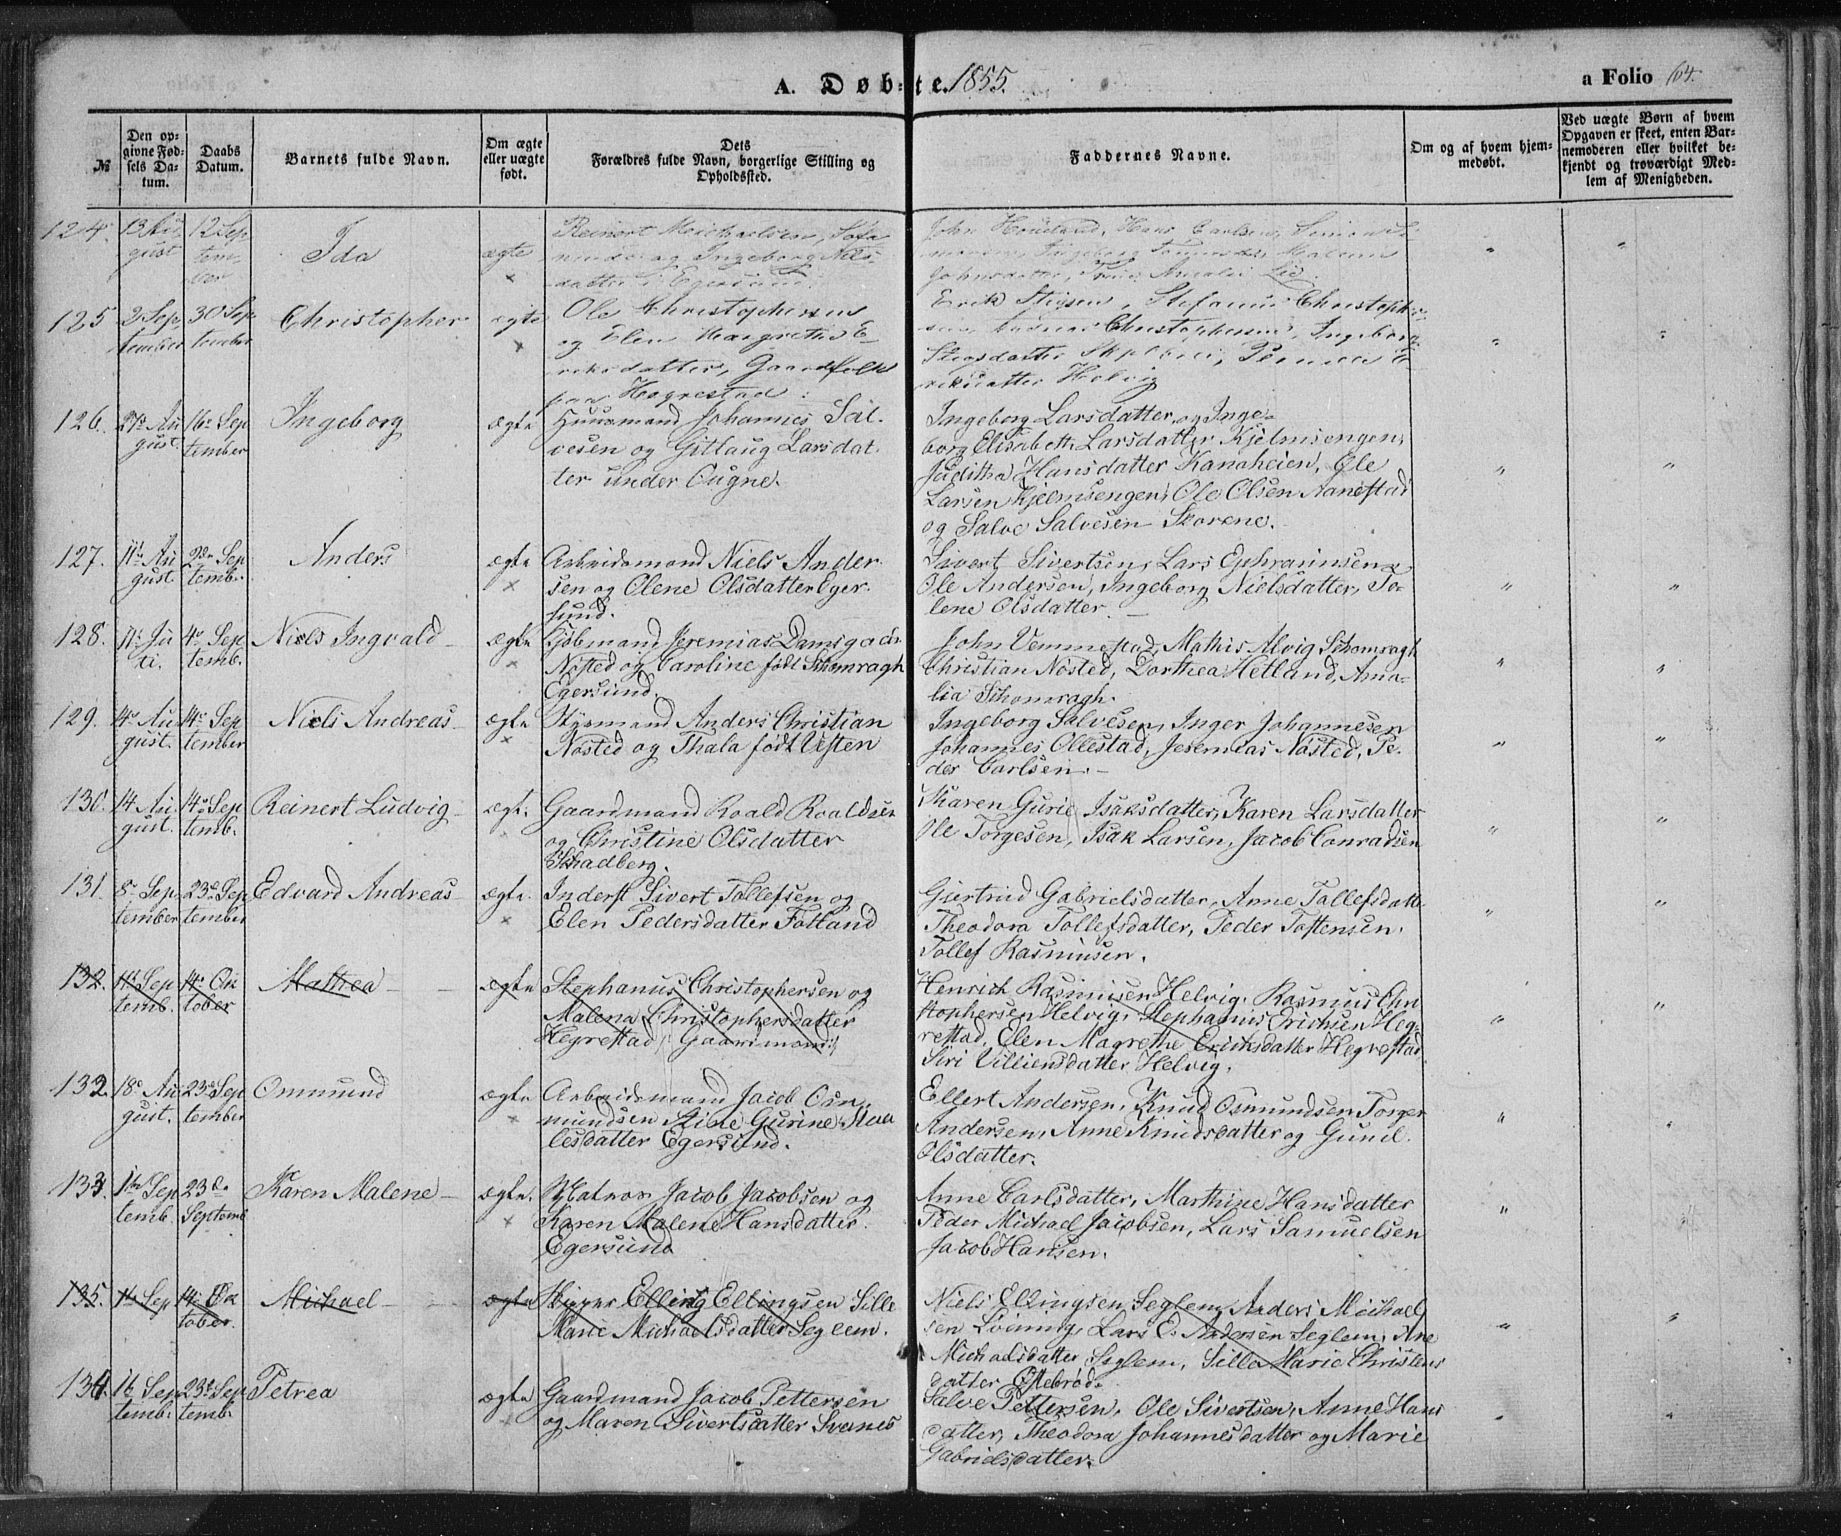 A. Døbte 1855.
a Folio 64.
№
Den opgivne Fødsels Datum.
Daabs Datum.
Barnets fulde Navn.
Om ægte eller uægte født.
Dets Forældres fulde Navn, borgerlige Stilling og Opholdssted.
Faddernes Navne.
Om og af hvem hjemmedøbt.
Ved uægte Børn af hvem Opgaven er skeet, enten Barnemoderen eller hvilket bekjendt og troværdigt Medlem af Menigheden.
124. 13 August 12 September Ida ægte
og Ingeborg Nilsdatter i Egersund.
125 2 September 30 September Christopher ægte Ole Christophersen
og Elen Margrethe E-
riksdatter, Gaardfolk
paa Hegrestad.
Erik Stigsen, Stefanus Christopher-
sen, Christophersen, Ingeborg
Stigsdatter
riksdatter Helvig
126. 27 August. 16 September Ingeborg ægte Huusmand Johannes Sal-
vesen og Gitlaug Larsdat-
ter under Ougne.
Ingeborg Larsdatter og Inge-
borg Elisabeth Larsdatter Kjelmsengen,
Juditha Hansdatter Kanaheien, Ole
Larsen Kjelmsengen, Ole Olsen Aanestad
og Salve Salvesen Skorene.
127. 11 August 2den Septemb. Anders ægte Arbeidsmand Niels Ander-
sen og Olene Olsdatter Eger-
sund.
Sivert Sivertsen, Lars Ephraimsen,
Ole Andersen, Ingeborg Nielsdatter, To-
lene Olsdatter.
128. 11 Juli. 4 Septemb. Niels Ingvald ægte Kjøbmand Jeremias Damsgaard
Nøsted og Caroline født Schomragh
Egersund.
John Vemmestad, Mathis Alvig Schomragh
Christian Nøsted, Dorthea Hetland, Ama-
lia Schomragh.
129. 14 August. 4 September Niels Andreas ægte Styrmand Anders Christian
Nøsted og Thala født Usten
Ingeborg Salvesen, Inger Johannesen
Johannes Ollestad, Jeremias Nøsted, Pe-
der Carlsen.
130. 14 August. 14 Septemb. Reinert Ludvig ægte Gaardmand Roald Roaldsen
og Christine Olsdatter
Skadberg.
Karen Gurie Isaksdatter, Karen Larsdatter
Ole Torgesen, Isak Larsen, Jacob Conradsen
131. 8 September 23de September Edvard Andreas ægte Inderst Sivert Tollefsen og
Elen Pedersdatter Fotland
Gjertrud Gabrielsdatter, Anne Tollefsdatt.
Theodora Tollefsdatter, Peder Tostensen,
Tollef Rasmusen.
132. Septemb. 14 October Mathea ægte Stephanus Christophersen og
Malena Christophersdatter
Hegrestad (: Gaardmand :)
Henrich Rasmusen Helvig, Rasmus Chri-
stophersen Helvig, Stephanus Erichsen Heg-
restad, Elen Magrethe Erichsdatter Hegrestad
Siri Villiensdatter Helvig.
132. 18 August. 23de September Ommund ægte Arbeidsmand Jacob Om-
mundsen Stine Gurine
lesdatter Egersund.
Ellert Andersen, Knud Osmundsen Torger
Andersen, Anne Knudsdatter og Gunil
Olsdatter.
133. Septemb. 23de Septemb. Karen Malene ægte. Matros Jacob Jacobsen og
Karen Malene Hansdatter.
Egersund
Anne Carlsdatter, Marthine Hansdatter
Peder Michael Jacobsen, Lars Samuelsen
Jacob Hansen.
135. Sep 14 October. Michael ægte Skipper Elling Ellingsen Sille
Marie Michaelsdatter Seglem.
Niels Ellingsen Seglem, Anders Michael-
sen Lønning, Lars E. Andersen Seglem, Ane
Michaelsdatter Seglem, Sille Marie Christens
datter Eftebrød.
134. 16 Septemb. 23de Septemb. Petrea ægte Gaardmand Jacob Pettersen
og Maren Sivertsdatter Svanes
Salve Pettersen, Ole Sivertsen, Anne Hans
datter, Theodora Johannesdatter og Marie
Gabrielsdatter.